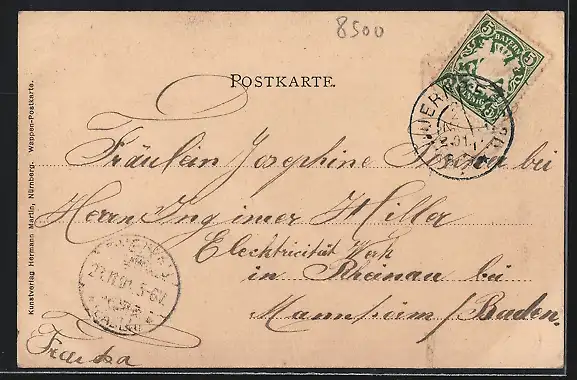 8500
POSTKARTE.
5 BAYERN 5
Fräulein Josephine bei
Herrn Ingenieur Hiller
Elecktricität Werk
in Rheinau bei
Mannheim / Baden.
Franka
Kunstverlag Hermann Martin, Nürnberg. Wappen-Postkarte.